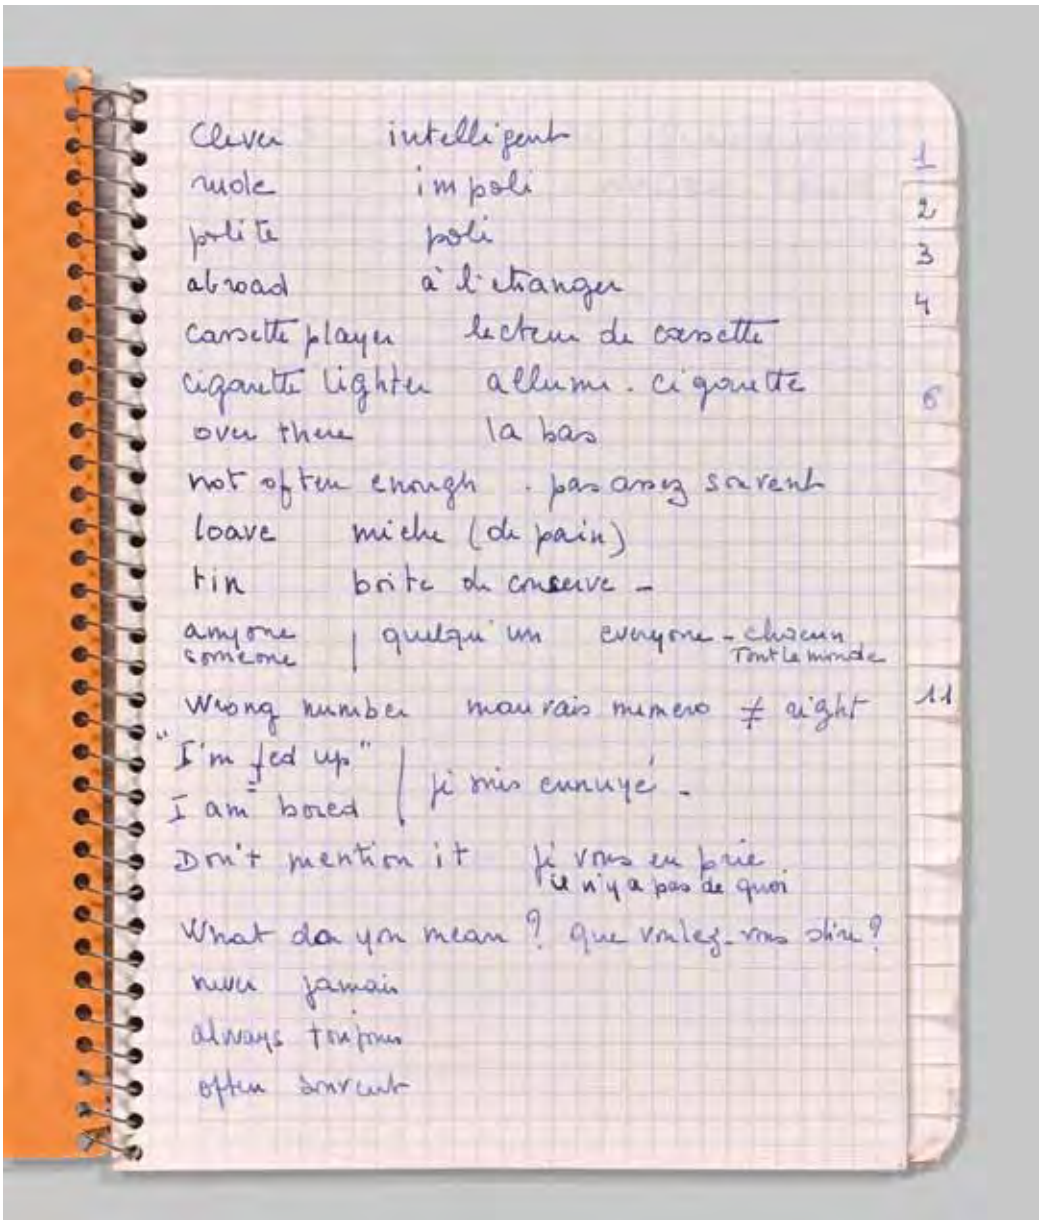 Clever intelligent
rude impoli
polite poli
abroad à l'étranger
cassette player lecteur de cassette
cigarette lighter allume-cigarette
over there la bas
not often enough . pas assez souvent
loave miche (de pain)
tin boite de conserve -
anyone | quelqu'un everyone - chacun
someone Tout le monde
Wrong number mauvais numero ≠ right
"I'm fed up"
= | je suis ennuyé -
I am bored
Don't mention it je vous en prie
il n'y a pas de quoi
What do you mean ? que voulez-vous dire ?
never jamais
always toujours
often souvent
1
2
3
4
6
11